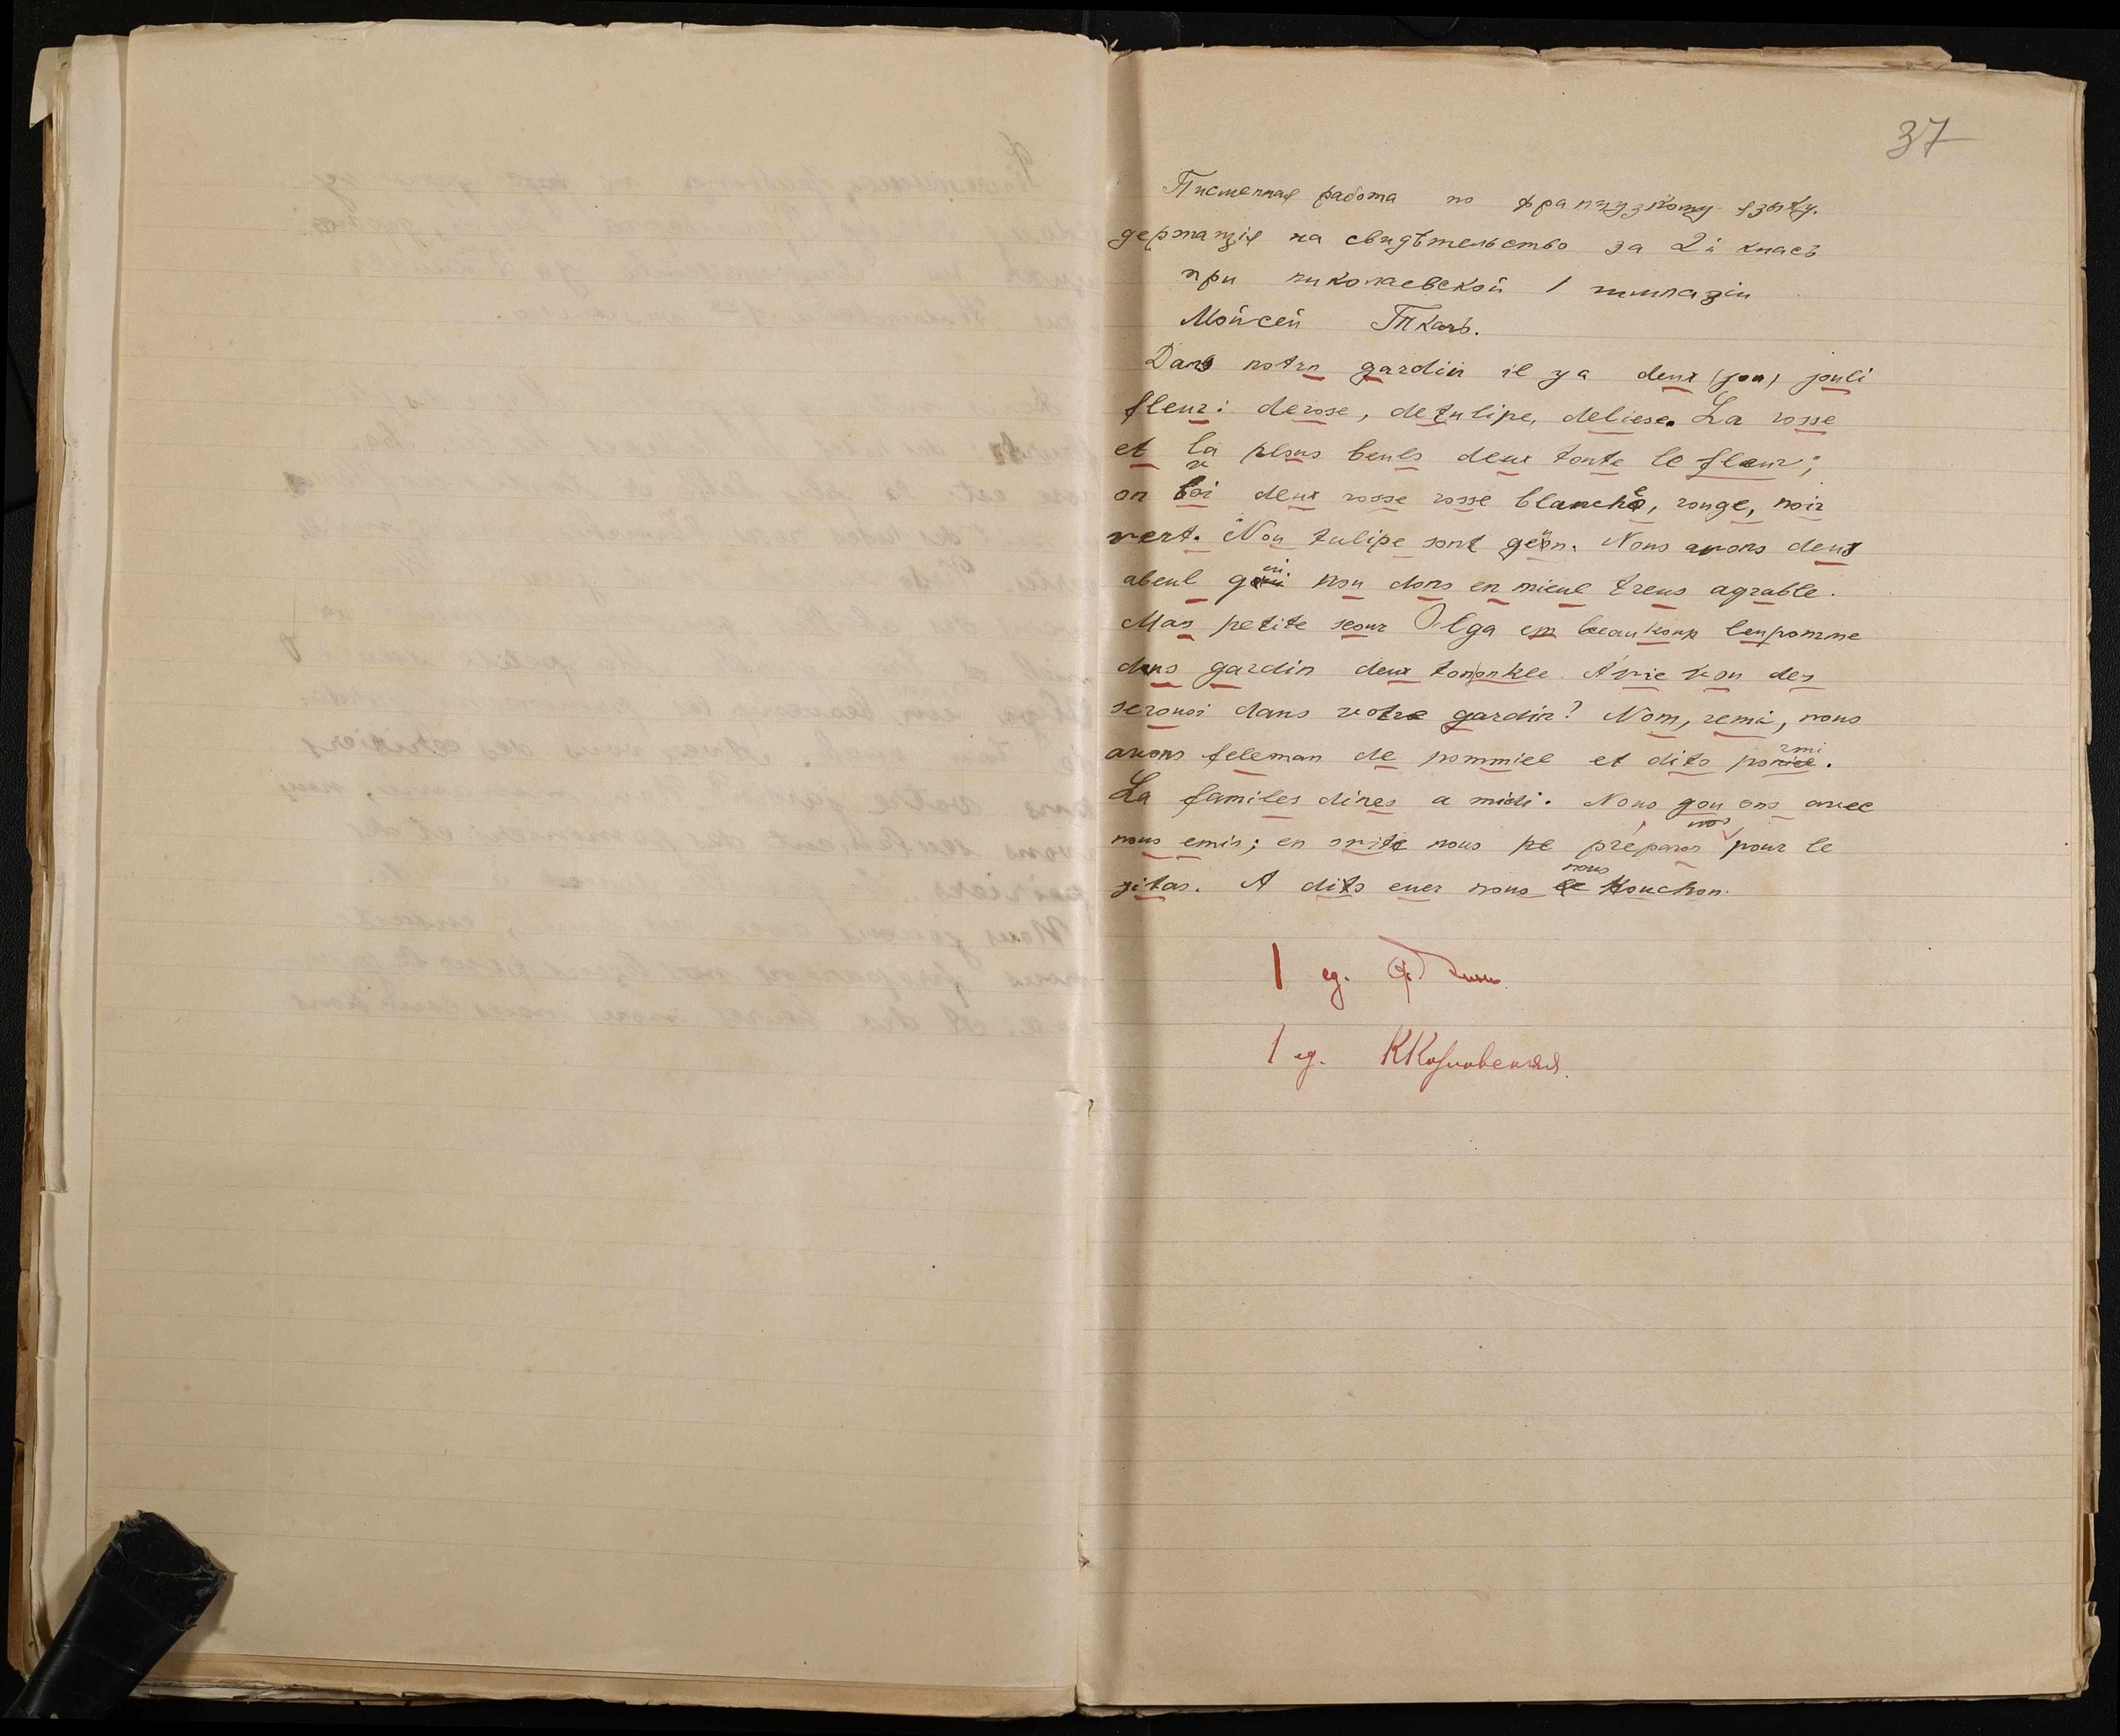 37
Писменная работа по французкому языку.
держанція на свидѣтельство за 2й класъ
при николаевской 1 гимназіи
Мойсей Ткачъ.
Dans notrn gardin il ya deux (jou) jouli
fleur: derose, detulipe, deliese. La rosse
et la plous beuls deux toute le fleur;
on voi deux rosse rosse blanche, rouge, noir
vert. Nou tulipe sont geön. Nous avons deux
abeul nou dons en mieul treus agrable.
Mas petite seour Olga em beaukoup leupomme
dans gardin deux tononkle. Avie vou des
serousi dans votre gardin? Nom, remi, nous
avons feleman de pommiel et dito
La familes dines a midi. Nous gou ons avec
nous emis; en suite nous pe préparos nos pour le
zitas. A dits euer nous nous kouchon.
1 ед.
1 ед.